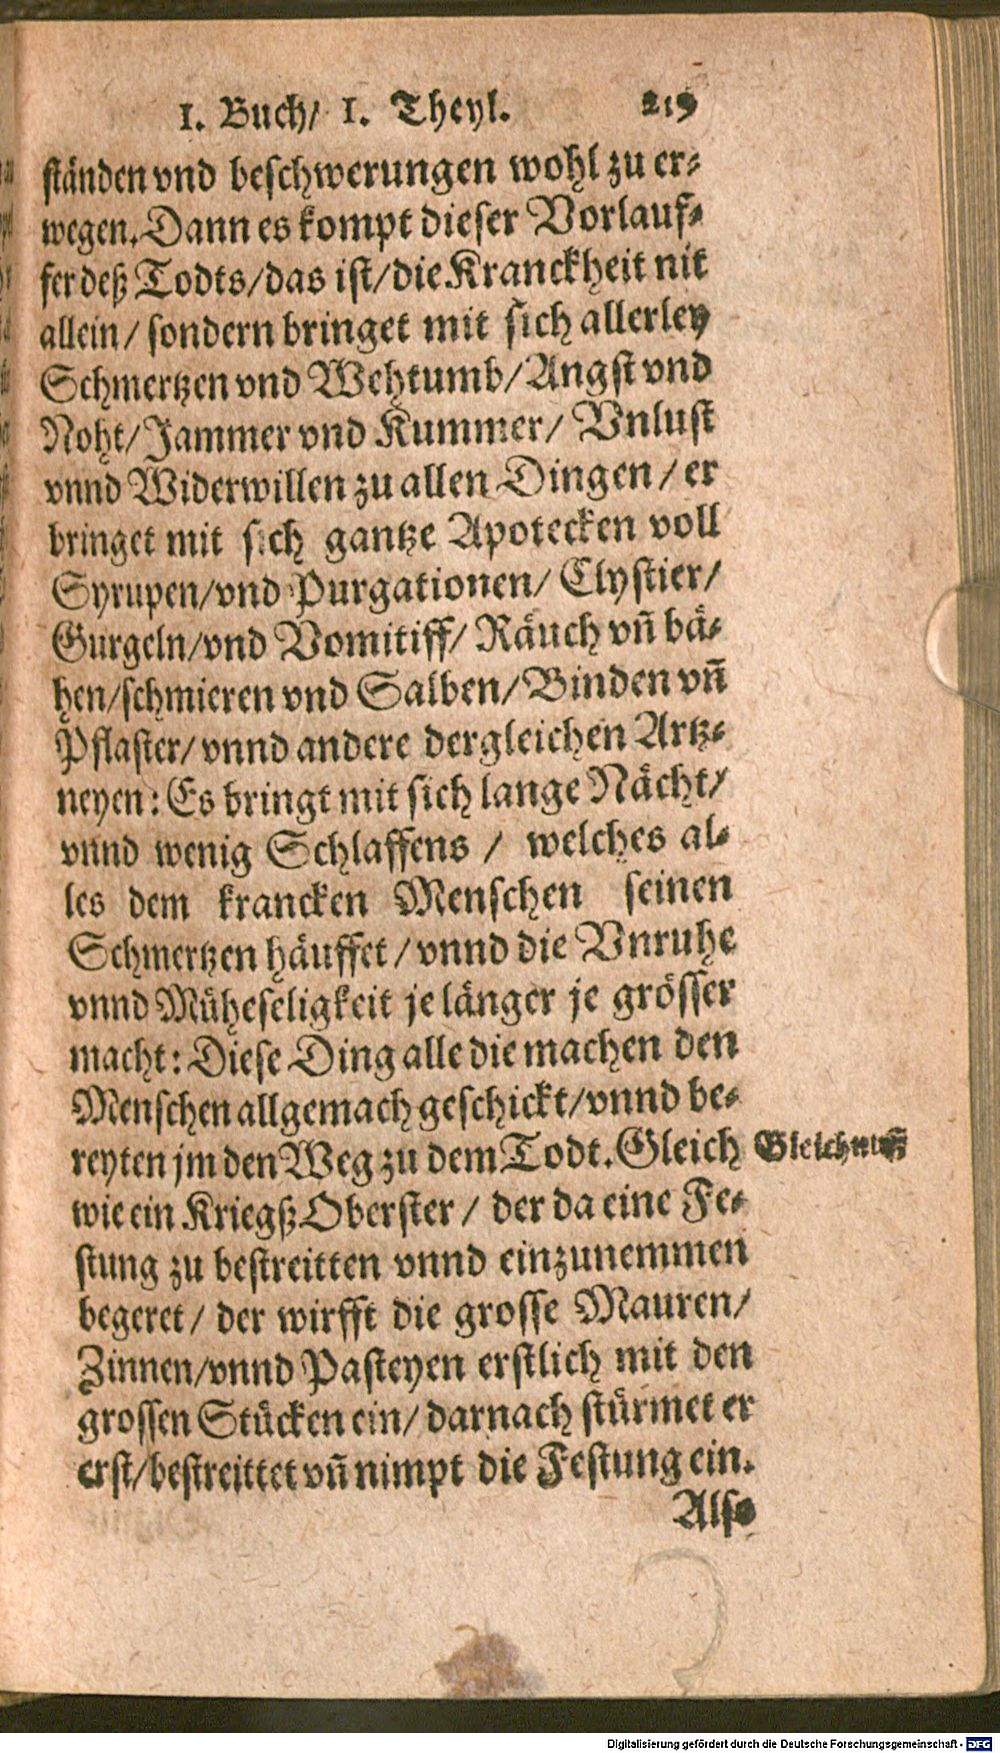 1. Buch/ 1. Theyl. 219
ständen vnd beschwerungen wohl zu er-
wegen. Dann es kompt dieser Vorlauf-
fer deß Todts/das ist/die Kranckheit nit
allein/ sondern bringet mit sich allerley
Schmertzen vnd Wehtumb/Angst vnd
Noht/Jammer vnd Kummer/ Vnlust
vnnd Widerwillen zu allen Dingen/er
bringet mit sich gantze Apotecken voll
Syrupen/vnd Purgationen/ Clystier/
Gurgeln/vnd Vomitiff/ Räuch vñ bä-
hen/schmieren vnd Salben/Binden vñ
Pflaster/vnnd andere dergleichen Artz-
neyen: Es bringt mit sich lange Nächt/
vnnd wenig Schlaffens / welches al-
les dem krancken Menschen seinen
Schmertzen häuffet/vnnd die Vnruhe
vnnd Müheseligkeit je länger je grösser
macht: Diese Ding alle die machen den
Menschen allgemach geschickt/vnnd be-
reyten jm den Weg zu dem Todt. Gleich
Gleichnuß
wie ein Kriegß Oberster/ der da eine Fe-
stung zu bestreitten vnnd einzunemmen
begeret/ der wirfft die grosse Mauren/
Zinnen/vnnd Pasteyen erstlich mit den
grossen Stücken ein/ darnach stürmet er
erst/bestreittet vñ nimpt die Festung ein.
Also
Digitalisierung gefördert durch die Deutsche Forschungsgemeinschaft - DFG